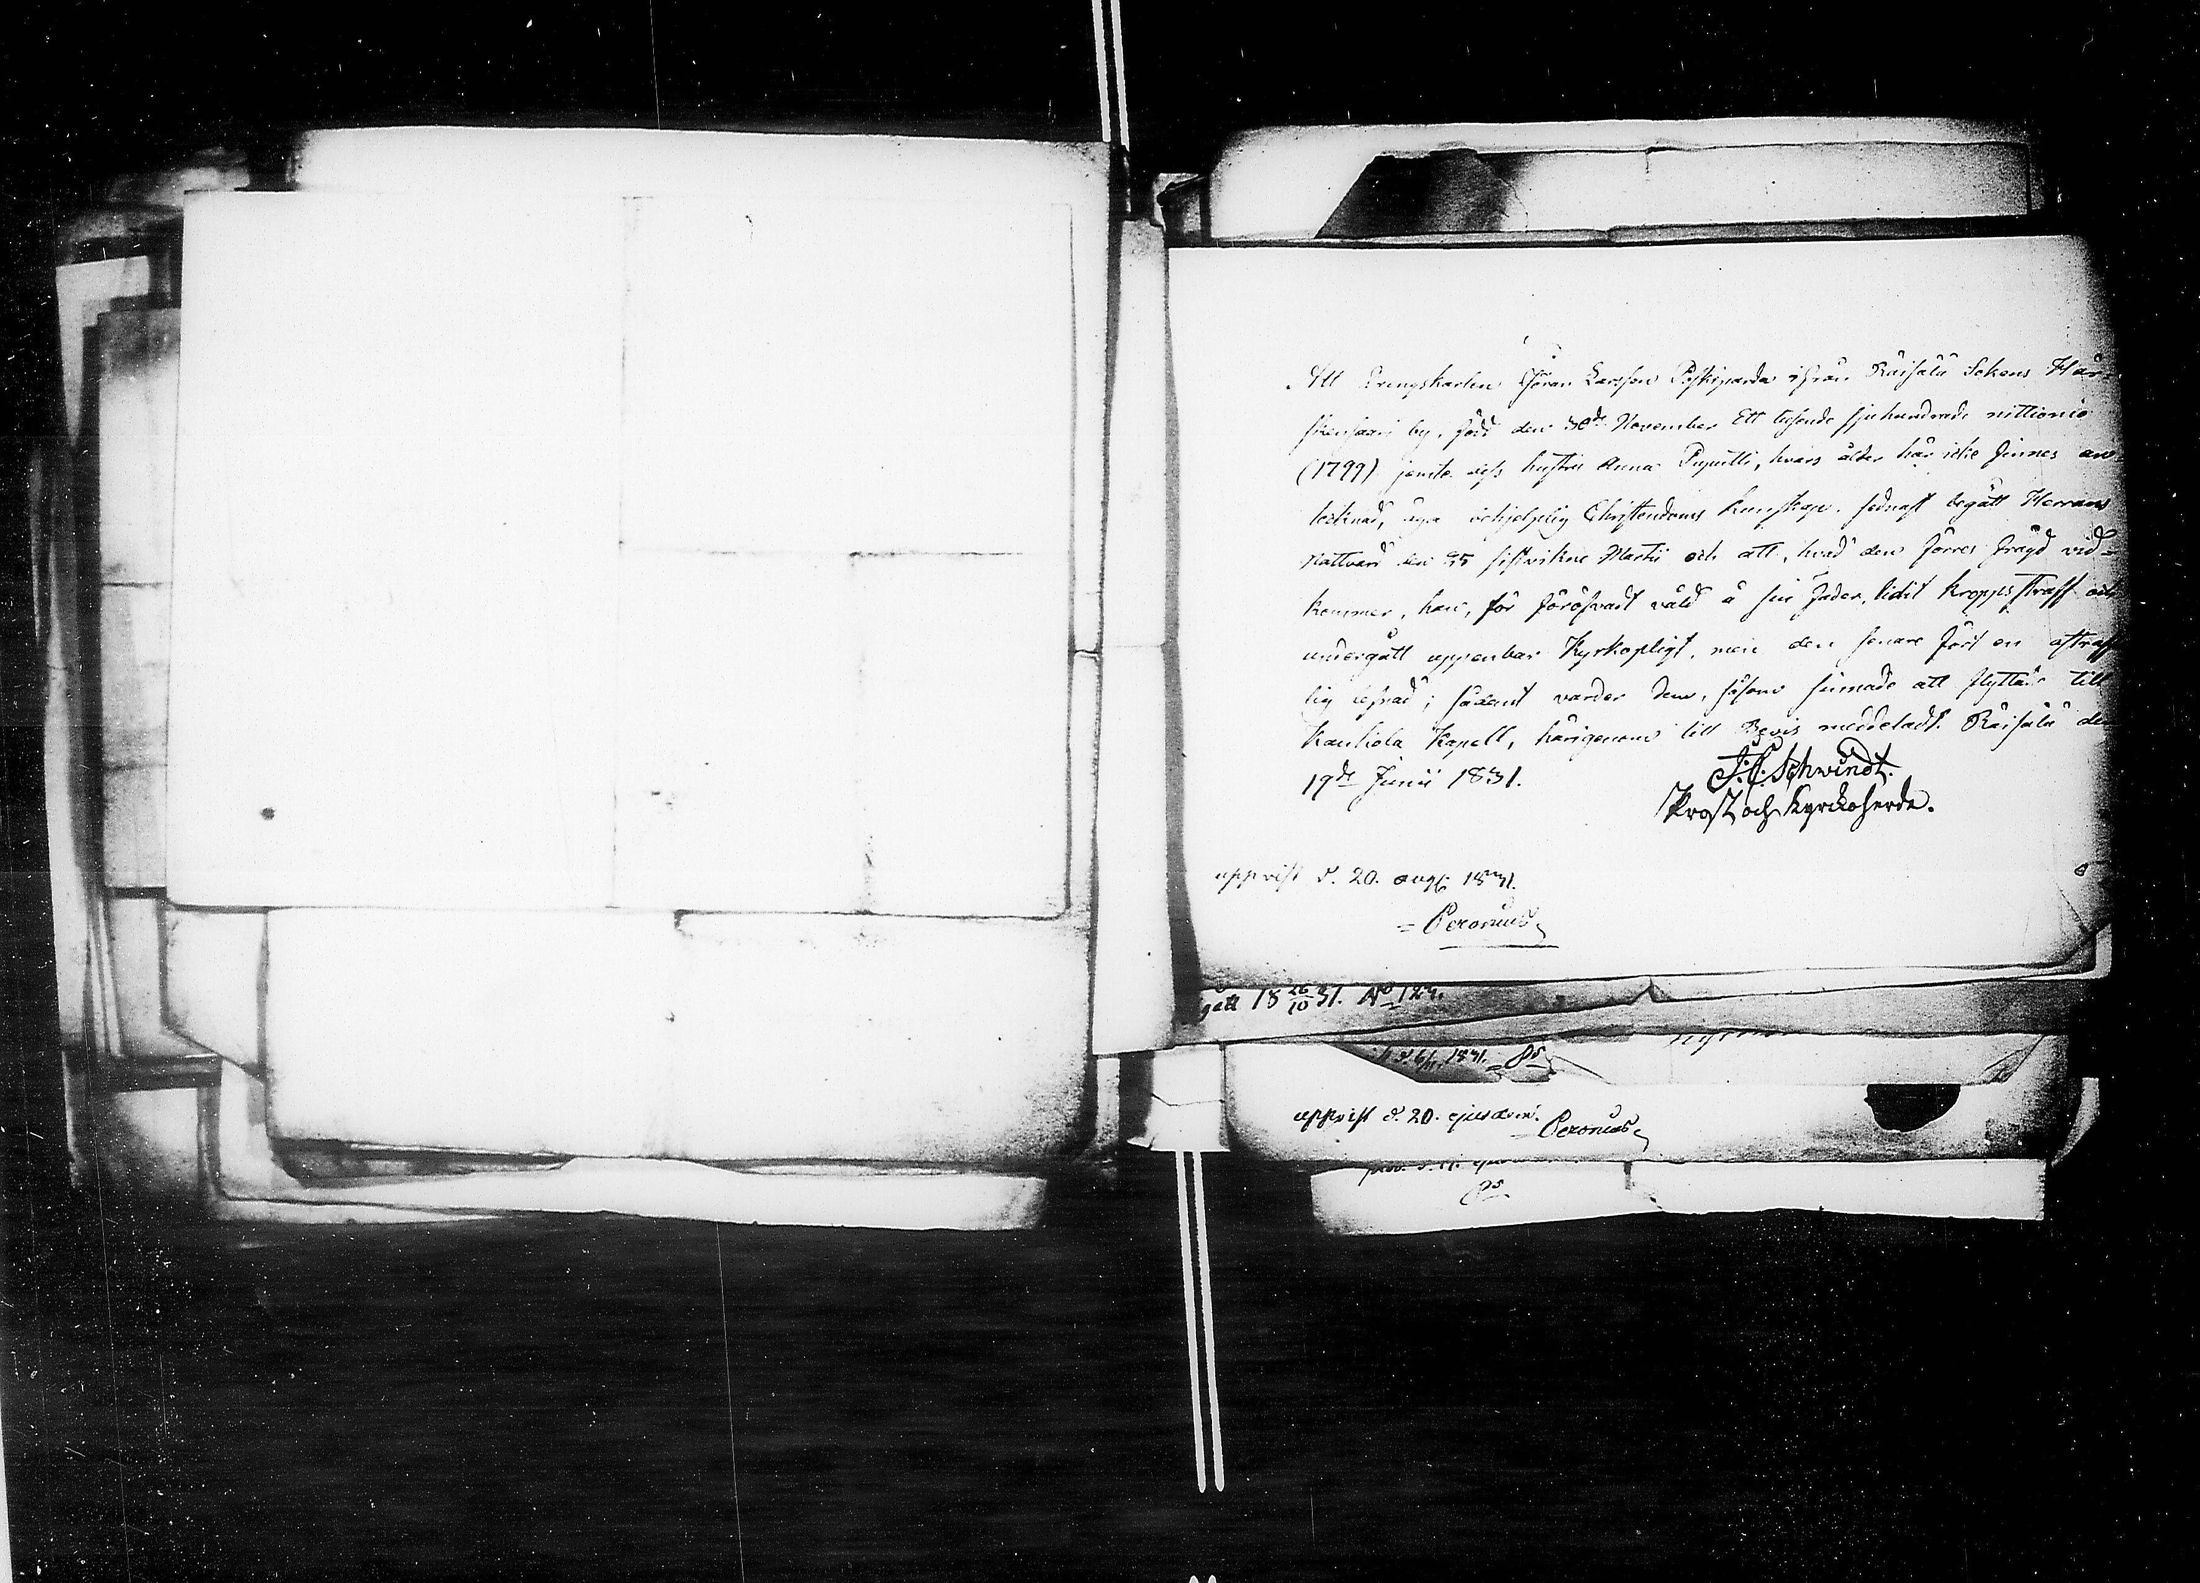 Att Drengkarlen Göran Larsson Poskiparda ifrån Räisälä Sokens Här-
skensaari by, född den 30de November Ett tusende sjuhundrade nittionio
(1799) jemte dess hustru Anna Puputti, hvars ålder här icke finnes an-
tecknad, äga örhjelplig Christendoms kunskap, sednast begått Herrans
Nattvard den 25 sistvikne Martii och att, hvad den förres frägd vid-
kommer, han, för föröfvadt våld å sin fader, lidit kroppsstraff och
undergått uppenbar Kyrkopligt, men den senare fört en ostraff
lig lefnad; sådant varder dem, såsom sinnade att flytta till
Kaukola Kapell, härigenom till Bevis meddeladt. Räisälä den
19de Junii 1831.
J. C. Schwindt.
Prost och Kyrckoherde.
uppvist d. 20. aug. 1831.
= Peronius
gått 18 26/10 31. No 124.
1831. = Ps
uppvist d. 20. ejusdem.
= Peronius
Ps